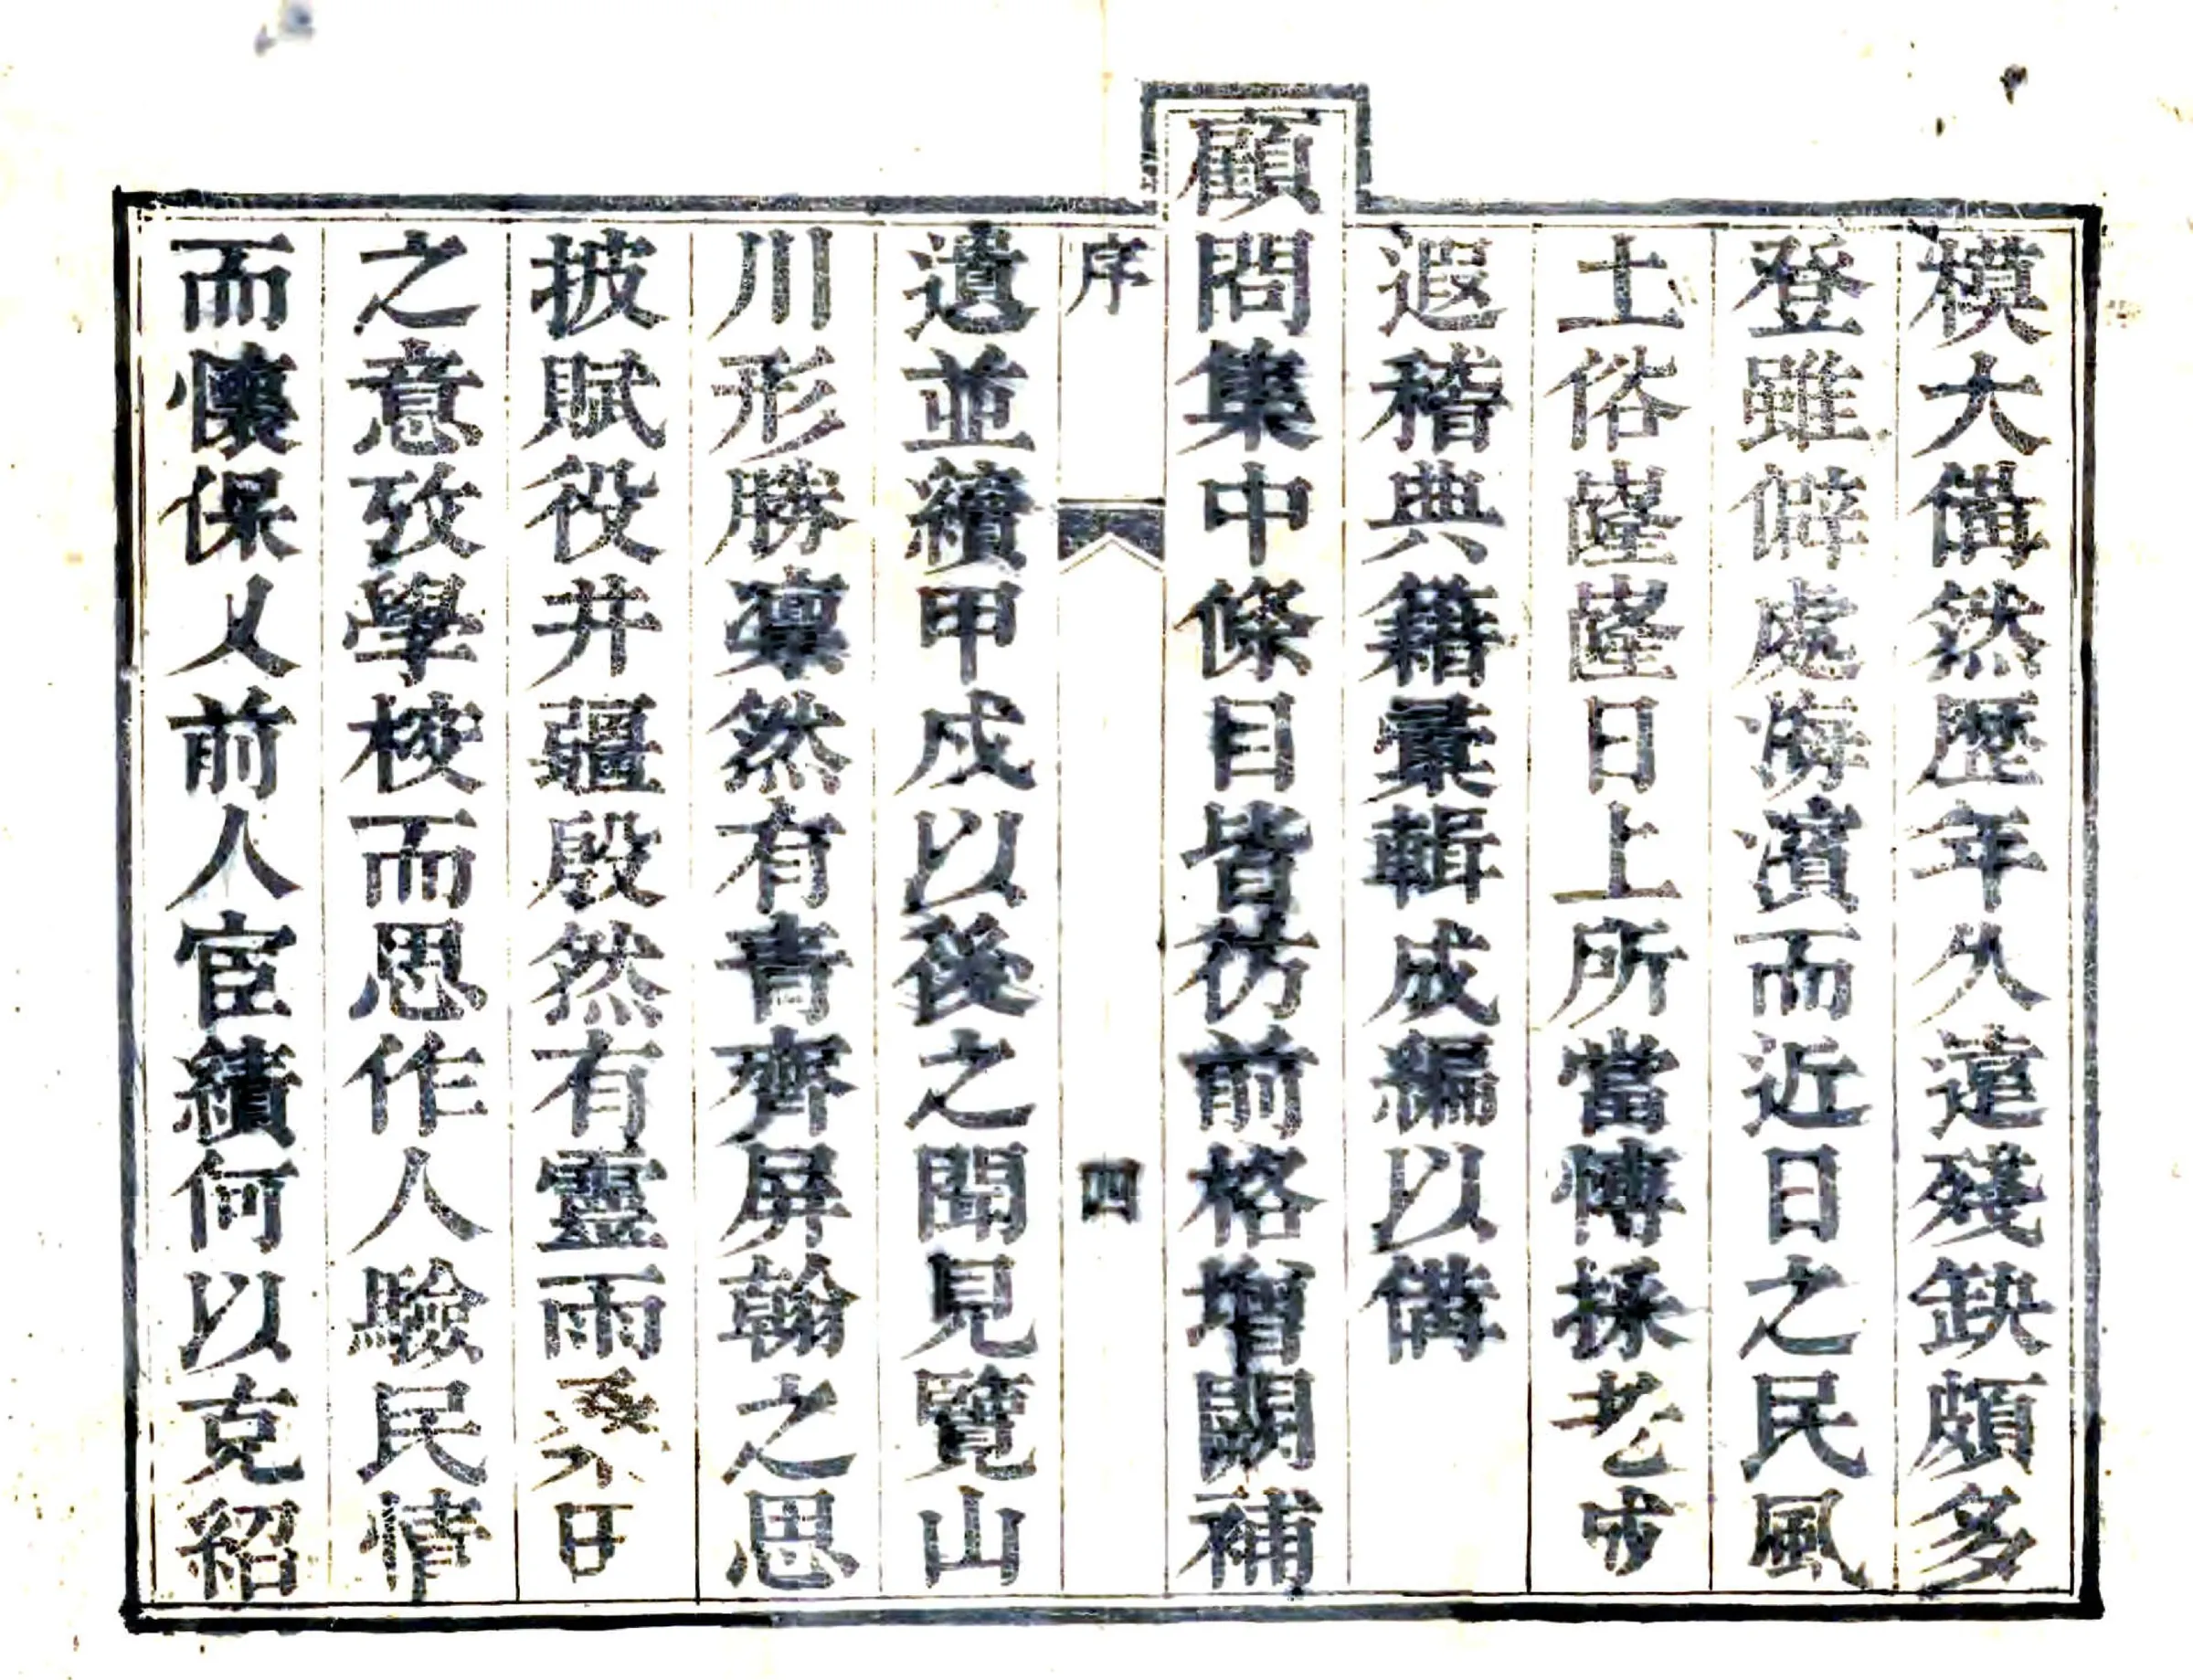 模大備然歷年久遠殘缺頗多
登雖僻處海濱而近日之民風
土俗蒸蒸日上所當博採老成
遐稽典籍彙輯成編以備
顧問集中條目皆仿前格增闕補
序 四
遺並續甲戌以後之聞見覽山
川形勝凜然有青齊屏翰之思
披賦役井疆殷然有靈雨桑田
之意攷學校而思作人驗民情
而懷保乂前人宦績何以克紹